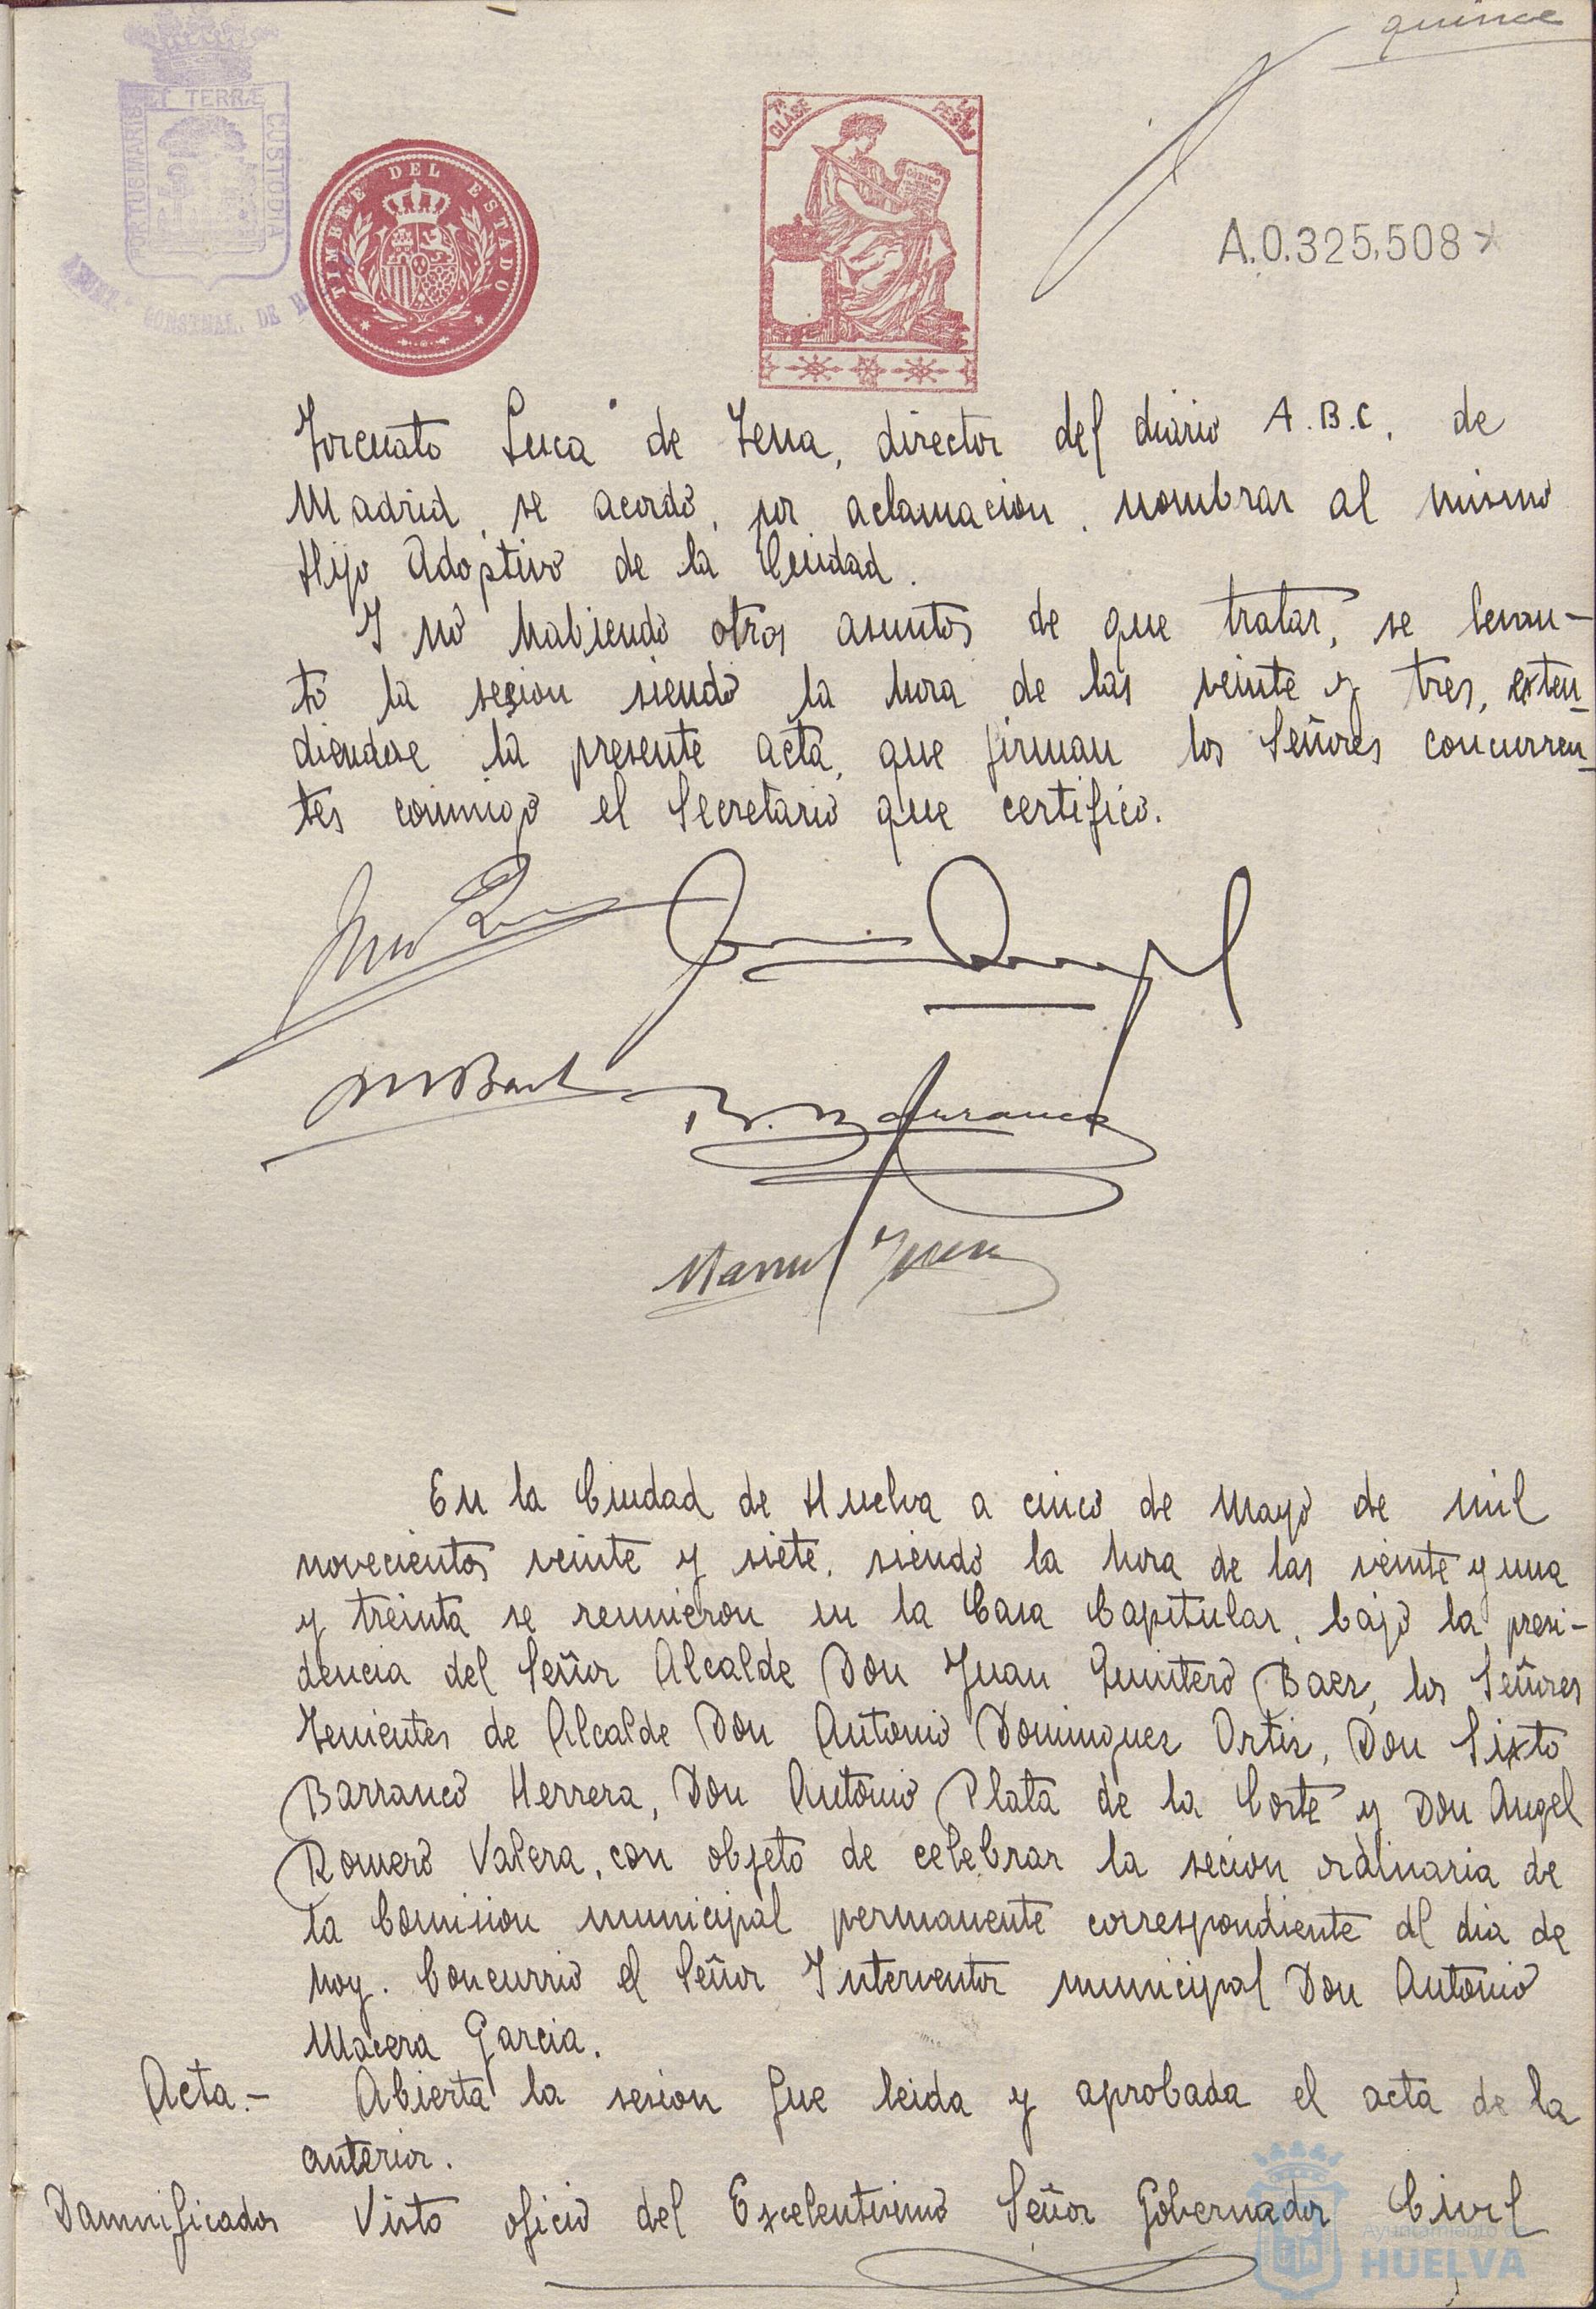 quince
PORTUS MARIS ET TERRÆ CUSTODIA
CONSTNAL. DE
TIMBRE DEL ESTADO
7ª CLASE
CODIGO
A.0.325.508*
Torcuato Luca de Tena, director del diario A.B.C. de
Madrid, se acordó, por aclamacion, nombrar al mismo
Hijo Adoptivo de la Ciudad.
Y no habiendo otros asuntos de que tratar, se levan-
tó la sesion siendo la hora de las veinte y tres, exten-
diendose la presente acta, que firman los Señores concurren-
tes conmigo el Secretario que certifico.
Manuel
En la Ciudad de Huelva a cinco de Mayo de mil
novecientos veinte y siete, siendo la hora de las veinte y una
y treinta se reunieron en la Casa Capitular, bajo la presi-
dencia del Señor Alcalde Don Juan Quintero Baez, los Señores
Tenientes de Alcalde Don Antonio Dominguez Ortiz, Don Sixto
Barranco Herrera, Don Antonio Plata de la Corte y Don Angel
Romero Valera, con objeto de celebrar la secion ordinaria de
la Comision municipal permanente correspondiente al dia de
hoy. Concurrió el Señor Interventor municipal Don Antonio
Macera Garcia.
Acta.- Abierta la sesion fue leida y aprobada el acta de la
anterior.
Damnificados Visto oficio del Excelentisimo Señor Gobernador Civil
Ayuntamiento de
HUELVA